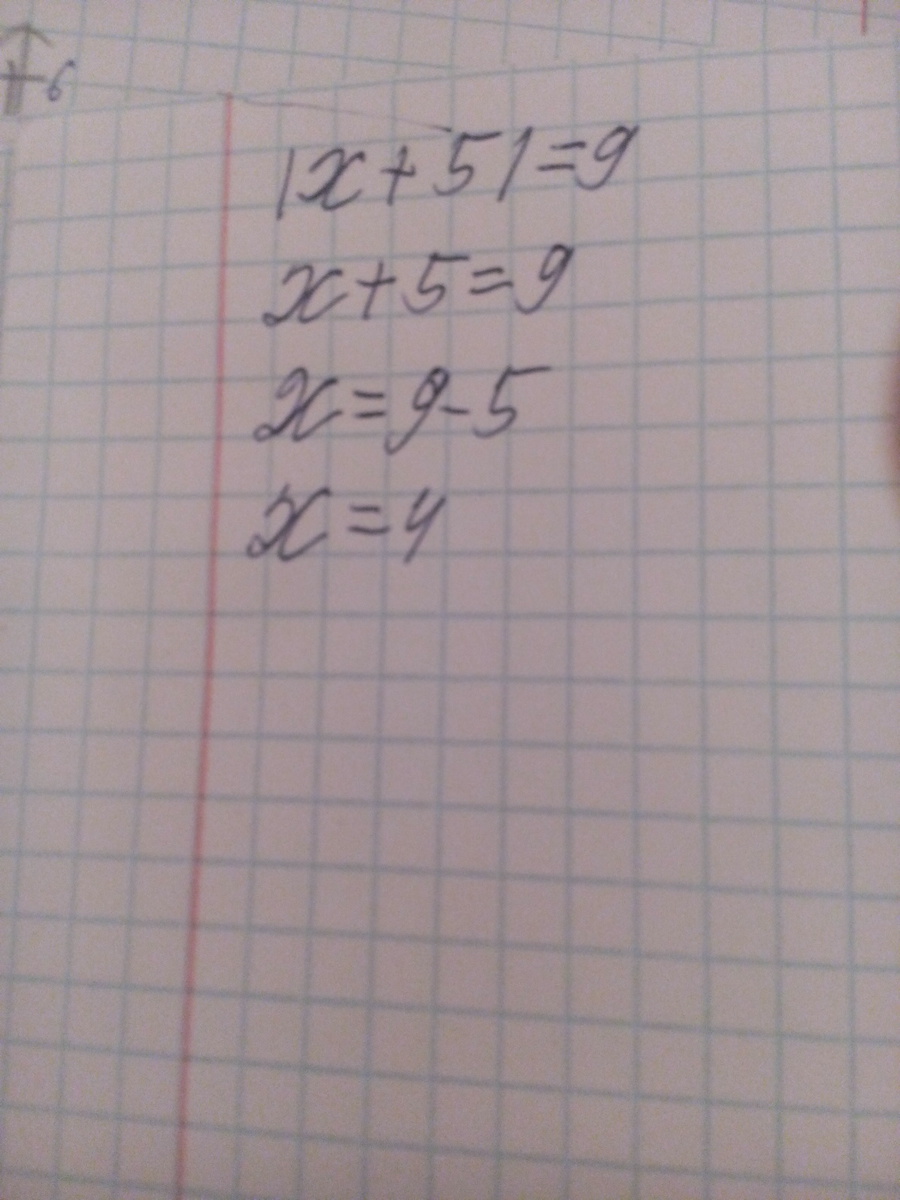 6
|x+5|=9
x+5=9
x=9-5
x=4